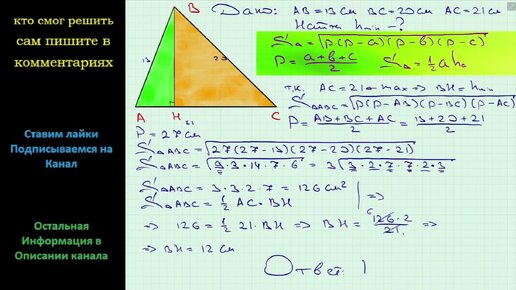 кто смог решить
сам пишите в
комментариях
Ставим лайки
Подписываемся на
Канал
Остальная
Информация в
Описании канала
B
13
20
A
H
21
C
Дано: AB = 13 см BC = 20 см AC = 21 см
Найти hmin - ?
S△ = √(p(p-a)(p-b)(p-c))
p = (a+b+c)/2 S△ = 1/2 a ha
т.к. AC = 21 - max => BH = hmin
S△ABC = √(p(p-AB)(p-BC)(p-AC))
p = (AB+BC+AC)/2 = (13+20+21)/2
p = 27 см
S△ABC = √(27(27-13)(27-20)(27-21))
S△ABC = √(9·3·14·7·6) = 3√(3·2·7·7·2·3)
S△ABC = 3·3·2·7 = 126 см² | =>
S△ABC = 1/2 AC · BH
=> 126 = 1/2 21 · BH => BH = 126·2/21 =>
=> BH = 12 см
Ответ: 1